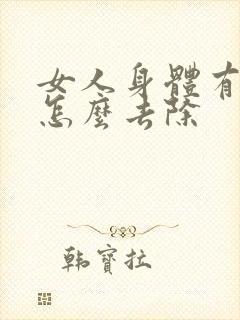 女人身體有
怎麼去除
韩寶拉